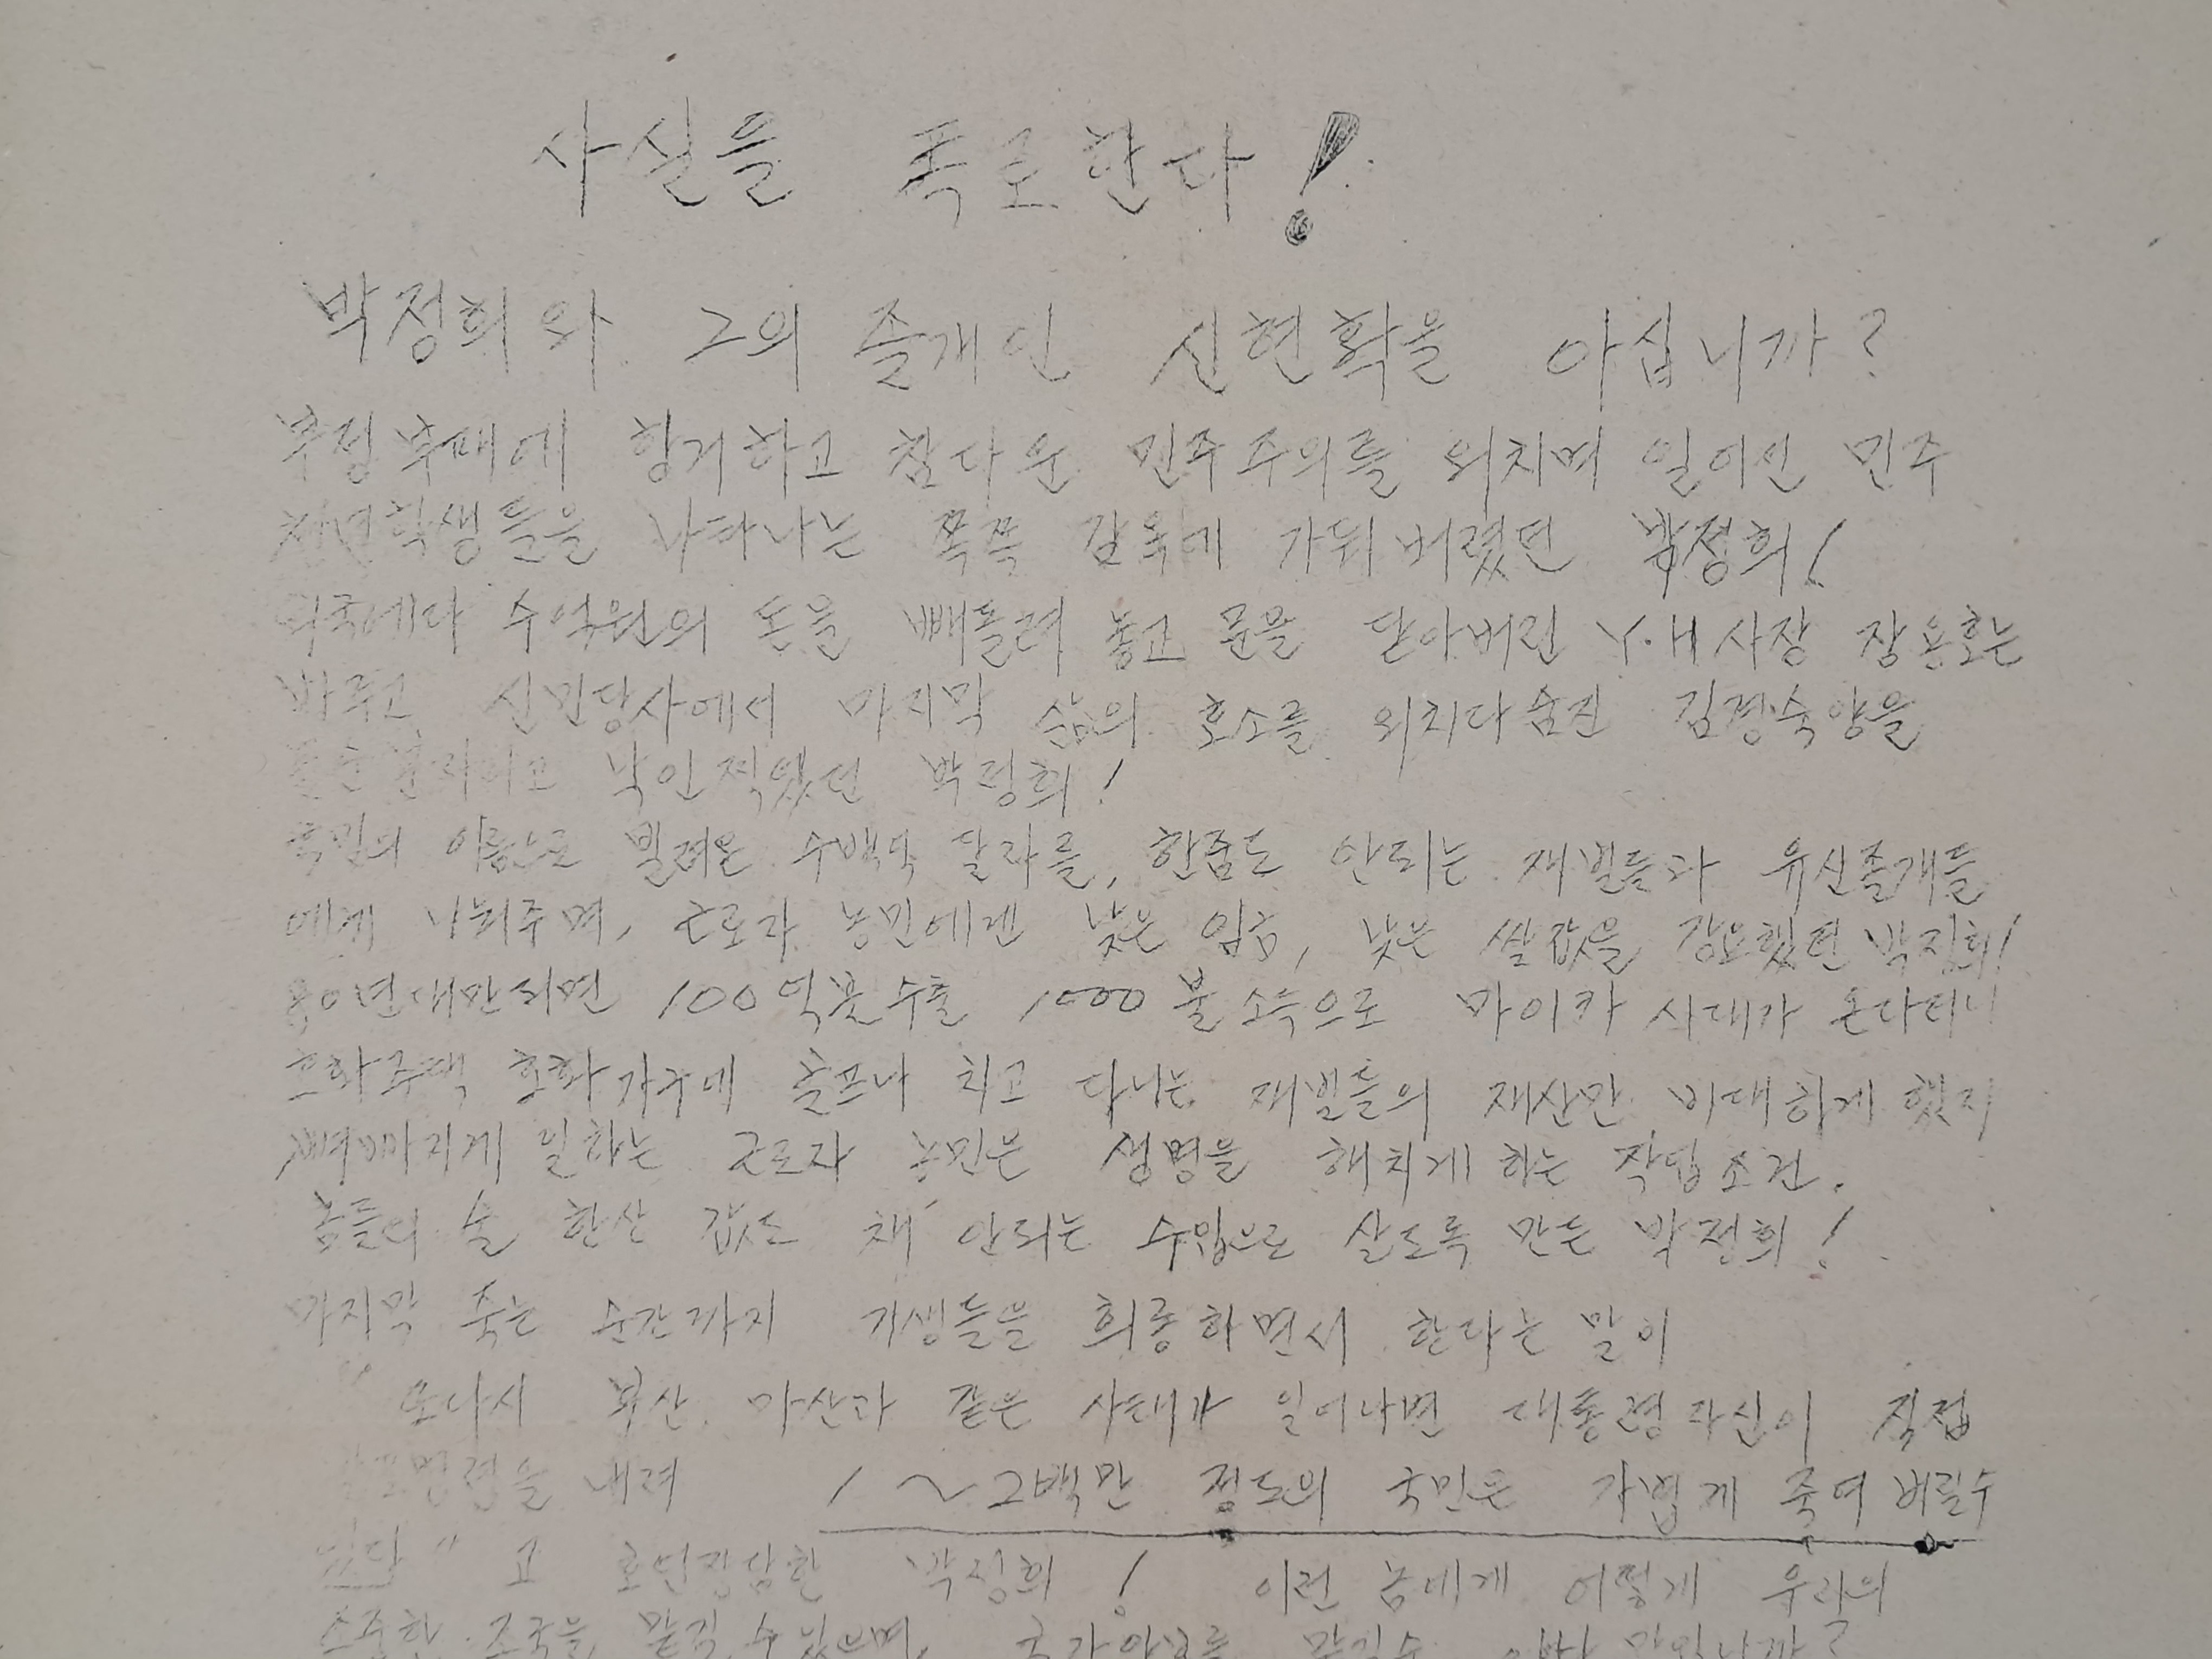 사실들 폭로한다!
박정희와 그의 졸개인 신현확을 아십니까?
부정부패에 항거하고 참다운 민주주의를 외치며 일어선 민주
청년학생들을 나타나는 쪽쪽 감옥에 가둬버렸던 박정희!
외국에다 수억원의 돈을 빼돌려 놓고 문을 닫아버린 Y.H사장 장용호는
놔두고 신민당사에서 마지막 삶의 호소를 외치다 숨진 김경숙양을
불순분자라고 낙인찍었던 박정희!
국민의 이름으로 빌려온 수백억 달라를, 한줌도 안되는 재벌들과 유신졸개들
에게 나눠주며, 근로자 농민에겐 낮은 임금, 낮은 쌀값을 강요했던 박정희!
80년대만되면 100억불수출 1000불 소득으로 마이카 시대가 온다더니
호화주택 호화가구에 골프나 치고 다니는 재벌들의 재산만 비대하게 했지
뼈빠지게 일하는 근로자 농민은 생명을 해치게 하는 작업조건.
놈들의 술 한잔 값도 채 안되는 수입으로 살도록 만든 박정희!
마지막 죽는 순간까지 기생들을 희롱하면서 한다는 말이
"또다시 부산, 마산과 같은 사태가 일어나면 대통령자신이 직접
발포명령을 내려 1~2백만 정도의 국민은 가볍게 죽여 버릴수
있다" 고 호언장담한 박정희! 이런 놈에게 어떻게 우리의
소중한 조국을 맡길 수 있으며, 국가안보를 맡길수